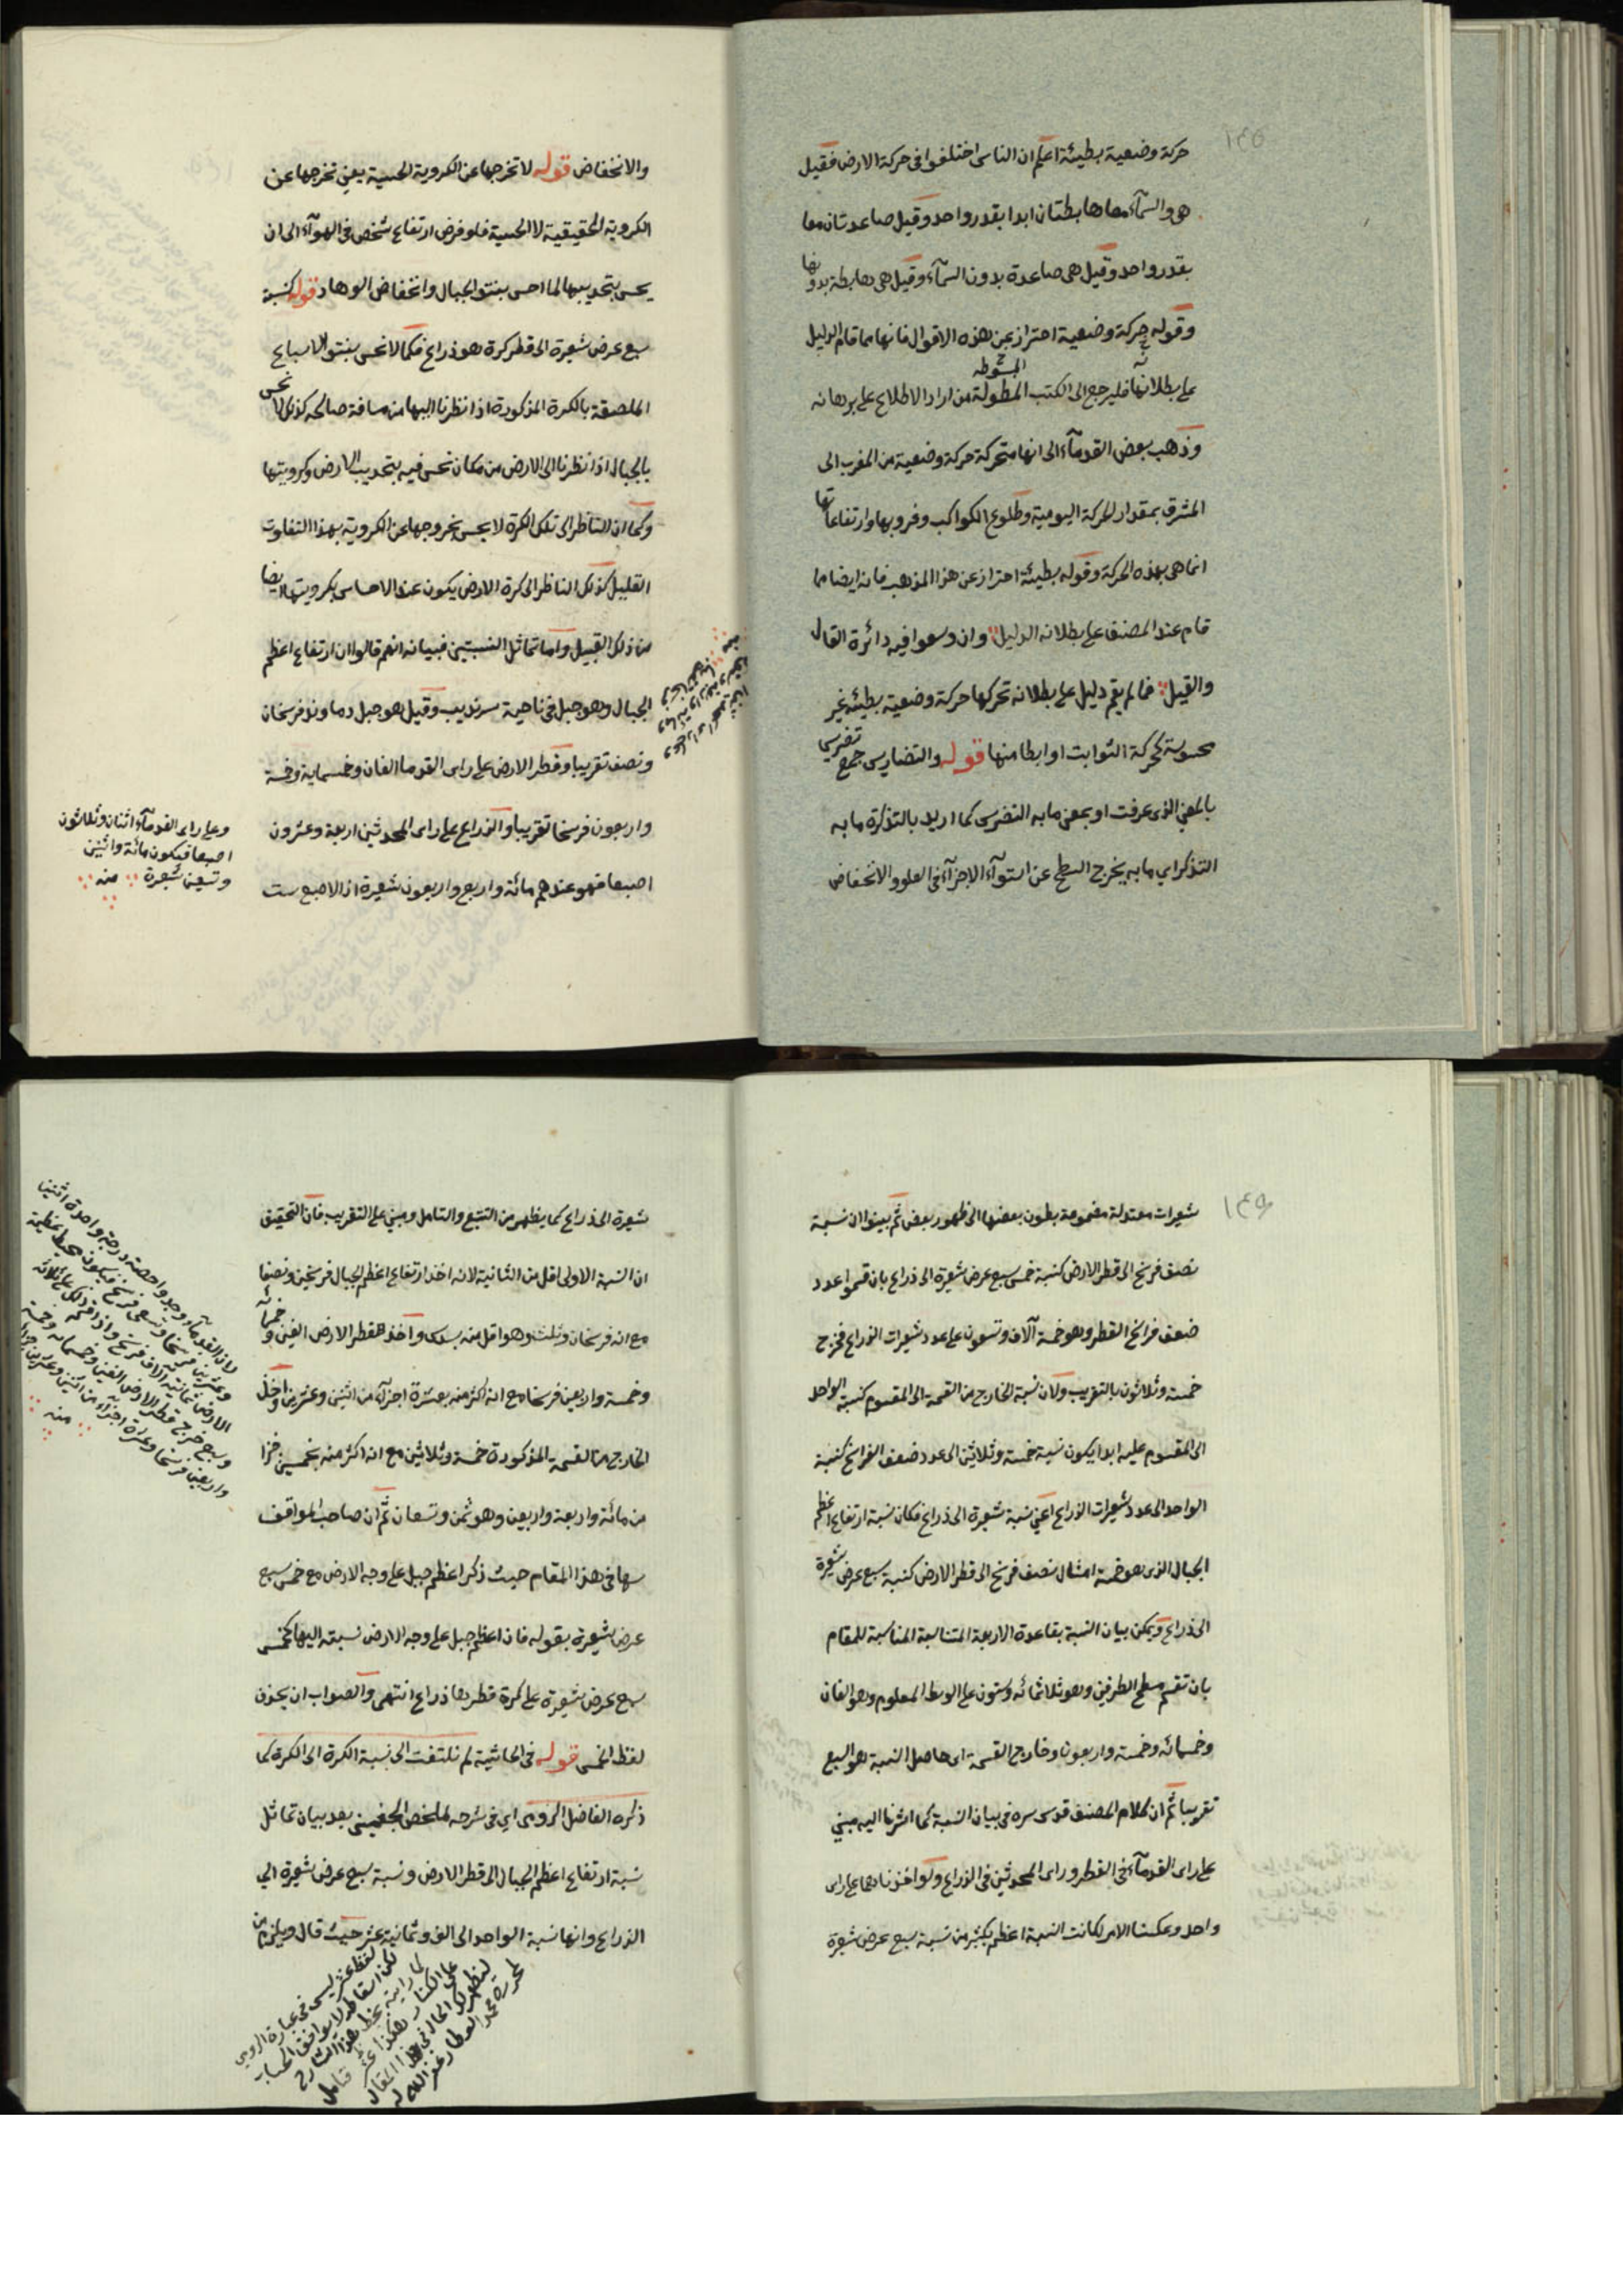 ١٣٥
حركة وضعية بطيئة اعلم ان الناس اختلفوا فى حركة الارض فقيل
هى والسمآء معا هابطتان ابدا بقدر واحد وقيل صاعدتان معا
بقدر واحد وقيل هى صاعدة بدون السمآء وقيل هى هابطة بدونها
وقوله حركة وضعية احتراز عن هذه الاقوال فانها مما قام الدليل
المبسوطة
على بطلانها فليرجع الى الكتب المطولة من اراد الاطلاع على برهانه
وذهب بعض القدمآء الى انها متحركة حركة وضعية من المغرب الى
المشرق بمقدار الحركة اليومية وطلوع الكواكب وغروبها وارتفاعاتها
انما هى بهذه الحركة وقوله بطيئة احتراز عن هذا المذهب فانه ايضا مما
قام عند المصنف على بطلانه الدليل وان وسعوا فيه دائرة القال
والقيل فما لم يقم دليل على بطلانه تحركها حركة وضعية بطيئة غير
محسوسة كحركة الثوابت او ابطا منها قوله والتضاريس جمع تضريس
بالمعنى الذى عرفت او بمعنى ما به التضرس كما اريد بالتذكرة ما به
التذكر اي ما به يخرج السطح عن استوآء الاجزآء فى العلو والانخفاض
والانخفاض قوله لا تخرجها عن الكروية الحسية يعنى تخرجها عن
الكروية الحقيقية لا الحسية فلو فرض ارتفاع شخص فى الهوآء الى ان
يحس بتحديبها لما احس بنتو الجبال وانخفاض الوهاد قوله كنسبة
سبع عرض شعيرة الى قطر كرة هو ذراع فكما لا نحس بنتو الاسباع
الملصقة بالكرة المذكورة اذا نظرنا اليها من مسافة صالحة كذلك لا نحس
بالجبال اذا نظرنا الى الارض من مكان نحس فيه بتحديب الارض وكرويتها
وكما ان الناظر الى تلك الكرة لا يحس بخروجها عن الكروية بهذا التفاوت
القليل كذلك الناظر الى كرة الارض يكون عند الاحساس بكرويتها ايضا
من ذلك القبيل واما تماثل النسبتين فبيانه انهم قالوا ان ارتفاع اعظم
الجبال وهو جبل فى ناحية سرنديب وقيل هو جبل دماوند فرسخان
ونصف تقريبا وقطر الارض على راى القوما الفان وخمسماية وخمسة
واربعون فرسخا تقريبا والذراع على راى المحدثين اربعة وعشرون
اصبعا فهو عندهم مائة واربع واربعون شعيرة اذ الاصبع ست
وعلى راى القدمآء اثنان وثلاثون
اصبعا فيكون مائة واثنين
وتسعين شعيرة منه
١٣٦
شعيرات معتدلة مضمومة بطون بعضها الى ظهور بعض ثم بينوا ان نسبة
نصف فرسخ الى قطر الارض كنسبة خمس سبع عرض شعيرة الى ذراع بان قسموا عدد
ضعف فراسخ القطر وهو خمسة آلاف وتسعون على عدد شعيرات الذراع فخرج
خمسة وثلاثون بالتقريب ولان نسبة الخارج من القسمة الى المقسوم كنسبة الواحد
الى المقسوم عليه ابدا يكون نسبة خمسة وثلاثين الى عدد ضعف الفراسخ كنسبة
الواحد الى عدد شعيرات الذراع اعنى نسبة شعيرة الى ذراع فكان نسبة ارتفاع اعظم
الجبال الذى هو خمسة امثال نصف فرسخ الى قطر الارض كنسبة سبع عرض شعيرة
الى ذراع ويمكن بيان النسبة بقاعدة الاربعة المتناسبة المناسبة للمقام
بان تقسم مسطح الطرفين وهو ثلاثمائه وستون على الوسط المعلوم وهو الفان
وخمسمائه وخمسة واربعون وخارج القسمة اى حاصل النسبة هو السبع
تقريبا ثم ان كلام المصنف قدس سره فى بيان النسبة كما اشرنا اليه مبنى
على راى القدمآء فى القطر وراى المحدثين فى الذراع ولو اخذناهما على راى
واحد وعكسنا الامر لكانت النسبة اعظم بكثير من نسبة سبع عرض شعيرة
شعيرة الى ذراع كما يظهر من التتبع والتامل ومبنى على التقريب فان التحقيق
ان النسبة الاولى اقل من الثانية لانه اخذ ارتفاع اعظم الجبال فرسخين ونصفا
مع انه فرسخان وثلث وهو اقل منه بسدس واخذ قطر الارض الفين وخمسمائه
وخمسة واربعين فرسخا مع انه اكثر منه بعشرة اجزآء من اثنين وعشرين واخذ
الخارج من القسمة المذكورة خمسة وثلاثين مع انه اكثر منه بخمسين جزا
من مائة واربعة واربعين وهو ثمن وتسعان ثم ان صاحب المواقف
سها فى هذا المقام حيث ذكر اعظم جبل على وجه الارض مع خمس سبع
عرض شعيرة بقوله فان اعظم جبل على وجه الارض نسبته اليها كخمس
سبع عرض شعيرة على كرة قطرها ذراع انتهى والصواب ان يحذف
لفظ الخمس قوله فى الحاشية لم نلتفت الى نسبة الكرة الى الكرة كما
ذكره الفاضل الرومى اي فى شرحه لملخص الجغمينى بعد بيان تماثل
نسبة ارتفاع اعظم الجبال الى قطر الارض ونسبة سبع عرض شعيرة الي
الذراع وانها نسبة الواحد الى الف وثمانية عشر حيث قال ويلزم من
لان القدمآء وجدوا حصة درجة واحدة اثنين
وعشرين فرسخا وتسعى فرسخ فيكون محيط عظيمة
الارض ثمانية آلاف فرسخ واذا قسم ذلك على ثلاثة
وسبع خرج قطر الارض الفين وخمسمائه وخمسة
واربعين فرسخا وعشرة اجزاء من اثنين وعشرين جزا
منه
لفظ عشر ليس فى عبارة الرومي
لكن اسقاطه لا يوافق الحساب
كما رايته بخط هذا الشارح
على الكتاب هكذا عشر فتامل
ليظهر لك الحال فى هذا المقال
لمحرره محمد العطار غفر الله له